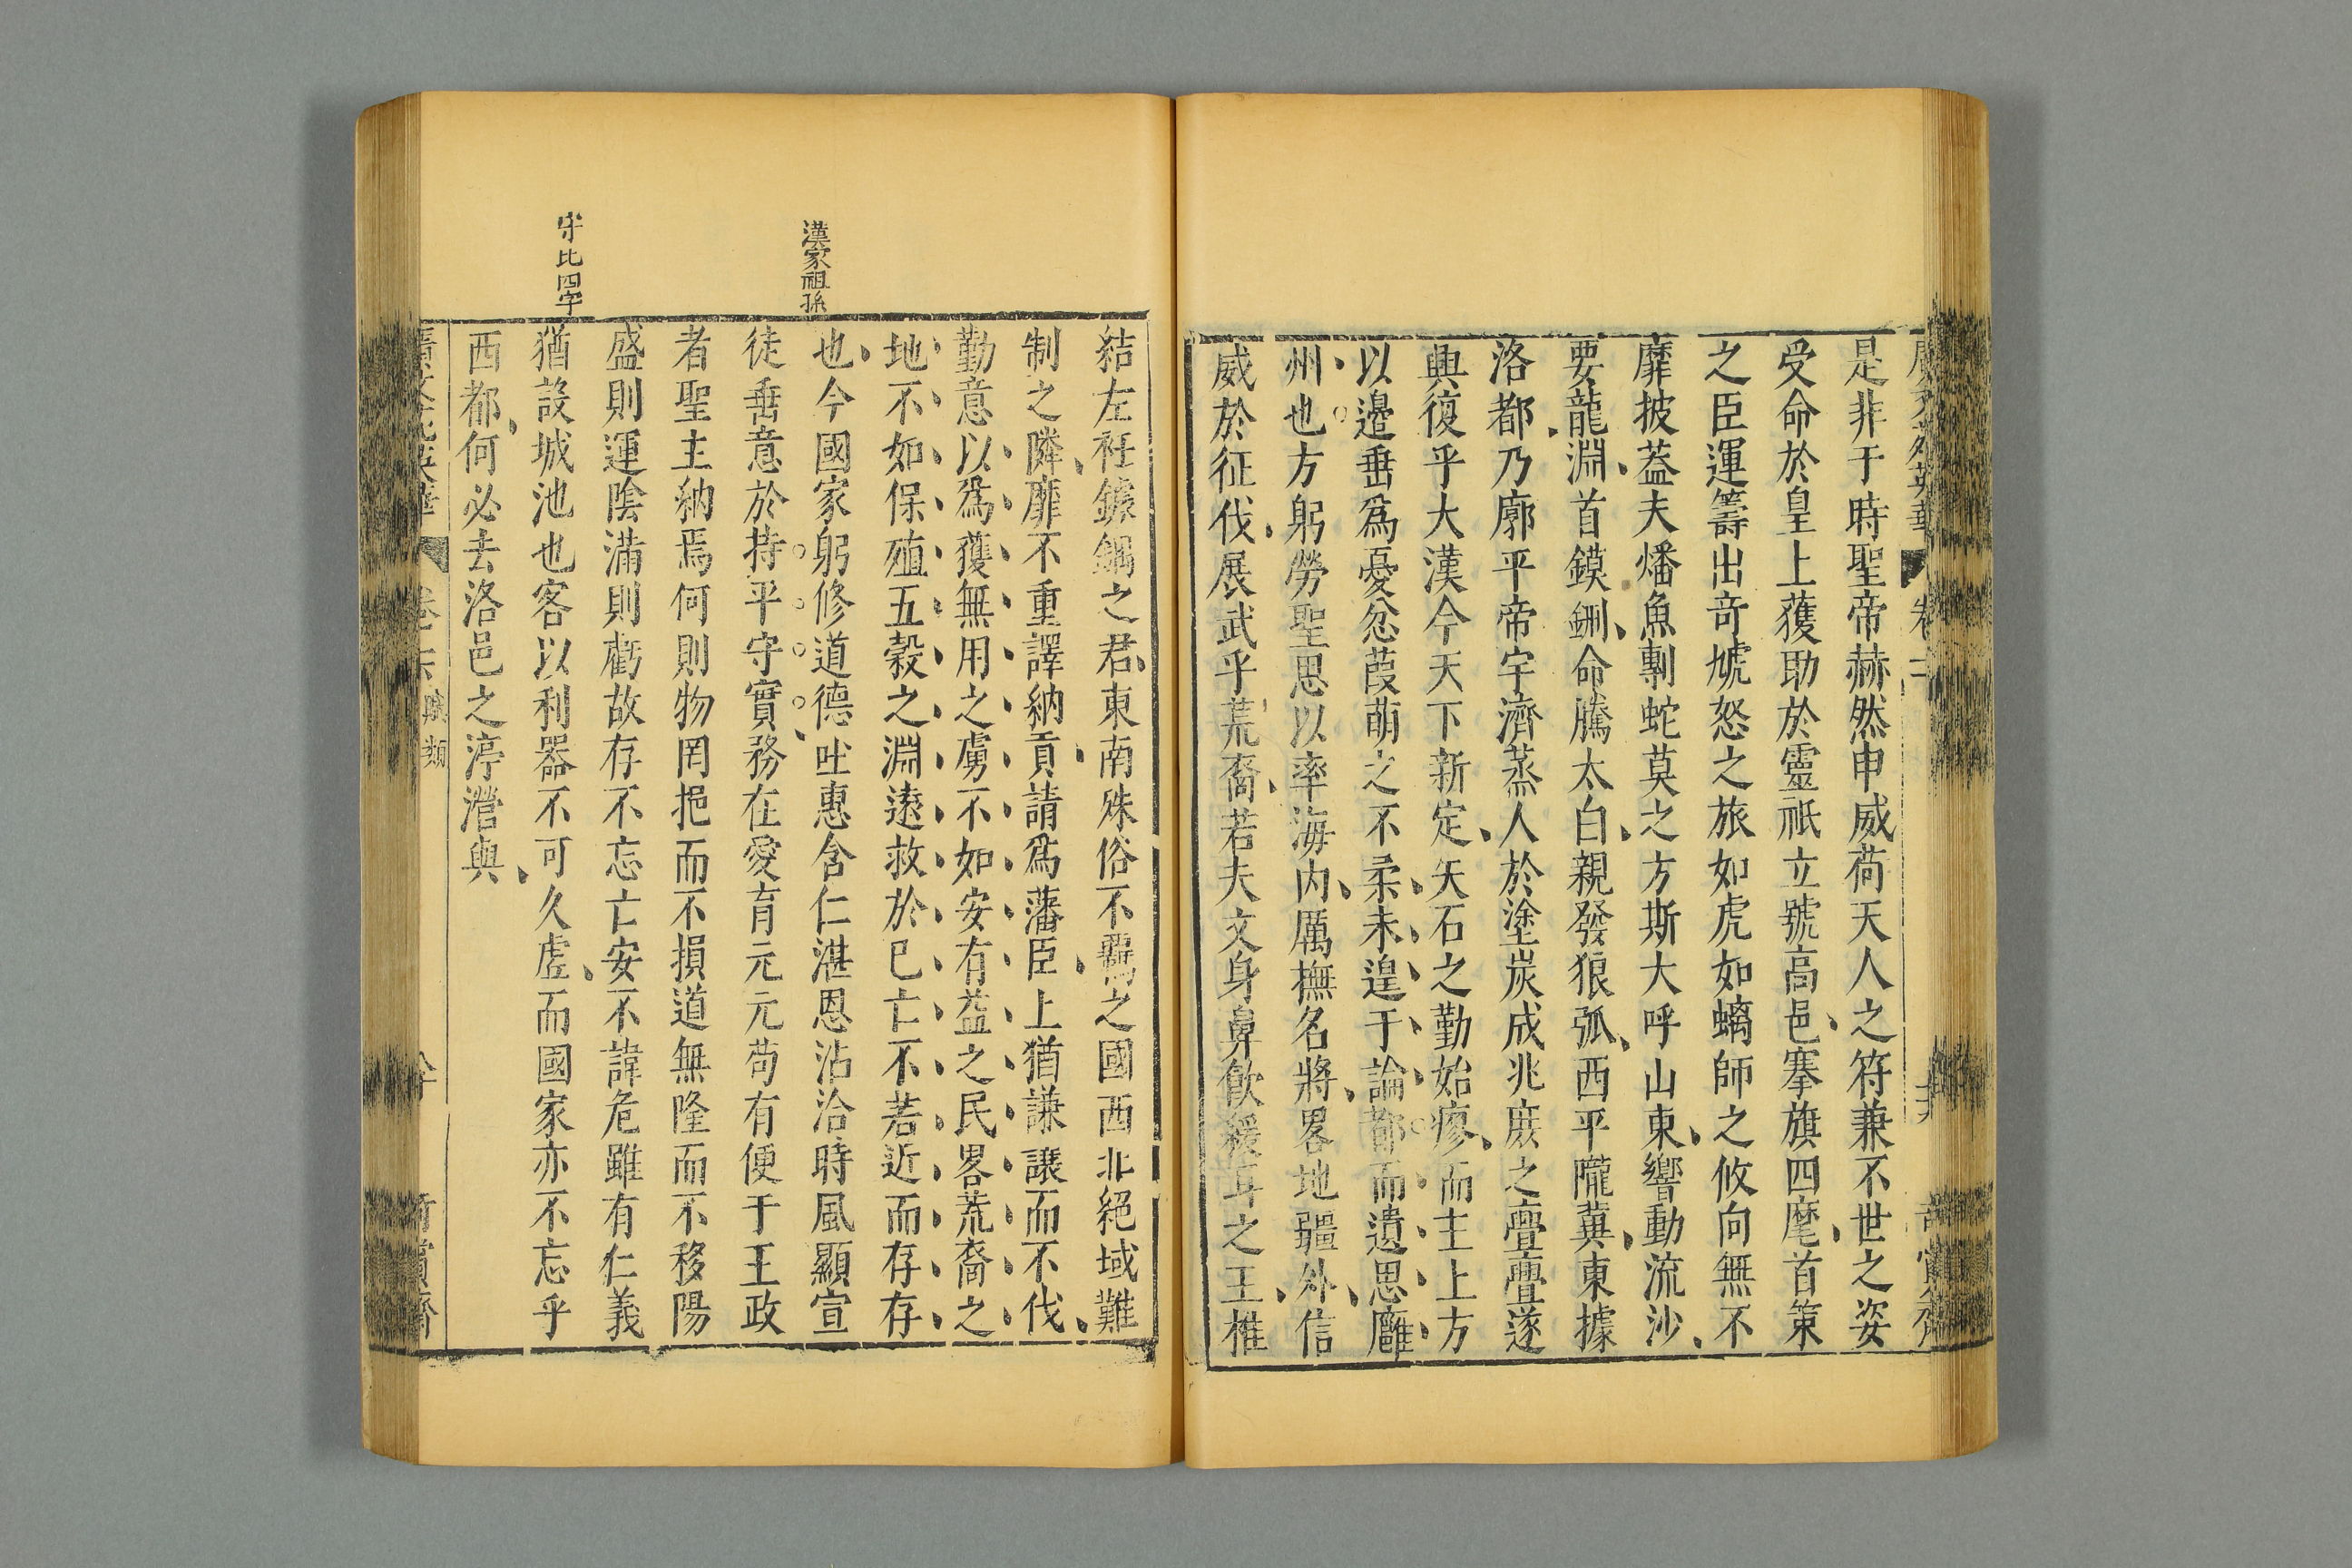 是非于時聖帝赫然申威荷天人之符兼不世之姿
受命於皇上獲助於靈祇立號高邑搴旗四麾首策
之臣運籌出奇虓怒之旅如虎如螭師之攸向無不
靡披葢夫燔魚剸蛇莫之方斯大呼山東響動流沙
要龍淵首鏌鉚命騰太白親發狼弧西平隴冀東據
洛都乃廓平帝宇濟蒸人於塗炭成兆庶之亹亹遂
興復乎大漢今天下新定矢石之勤始瘳而主上方
以邊垂爲憂忿葭萌之不柔未遑于論都而遺思廱
州也方躬勞聖思以率海内厲撫名將畧地疆外信
威於征伐展武乎荒裔若夫文身鼻飮緩耳之王椎
結左衽鐻鍝之君東南殊俗不羈之國西北絕域難
制之隣靡不重譯納貢請爲藩臣上猶謙讓而不伐
勤意以爲獲無用之虜不如安有益之民畧荒裔之
地不如保殖五穀之淵遠救於已亡不若近而存存
也今國家躬修道德吐惠含仁湛恩沾洽時風顯宣
徒垂意於持平守實務在愛育元元苟有便于王政
者聖主納焉何則物罔挹而不損道無隆而不移陽
盛則運陰滿則虧故存不忘亡安不諱危雖有仁義
猶設城池也客以利器不可久虛而國家亦不忘乎
西都何必去洛邑之渟瀯與
漢家祖孫
守比四字